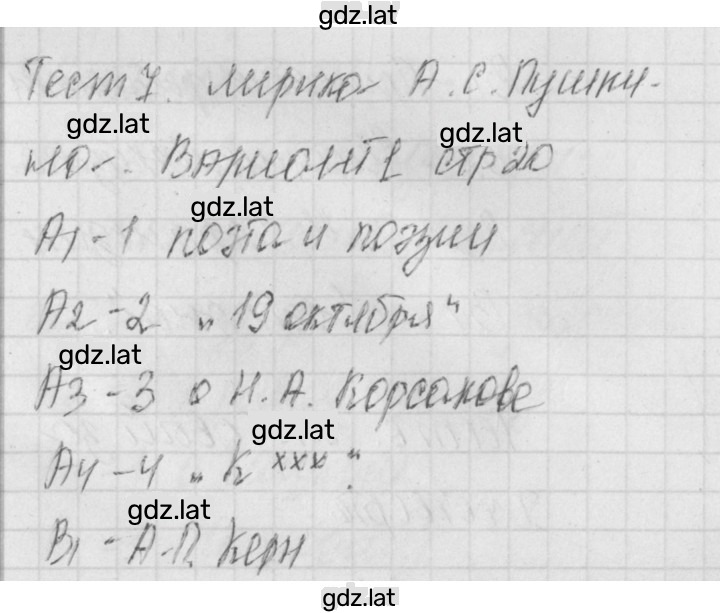 gdz.lat
Тест 7. Лирика А. С. Пушки-
gdz.lat
gdz.lat
на. Вариант 1 стр 20
gdz.lat
А1 - 1 поэта и поэзии
А2 - 2 „19 октября"
gdz.lat
А3 - 3 о Н. А. Корсакове
gdz.lat
А4 - 4 „К ххх".
gdz.lat
В1 - А.П. Керн
gdz.lat